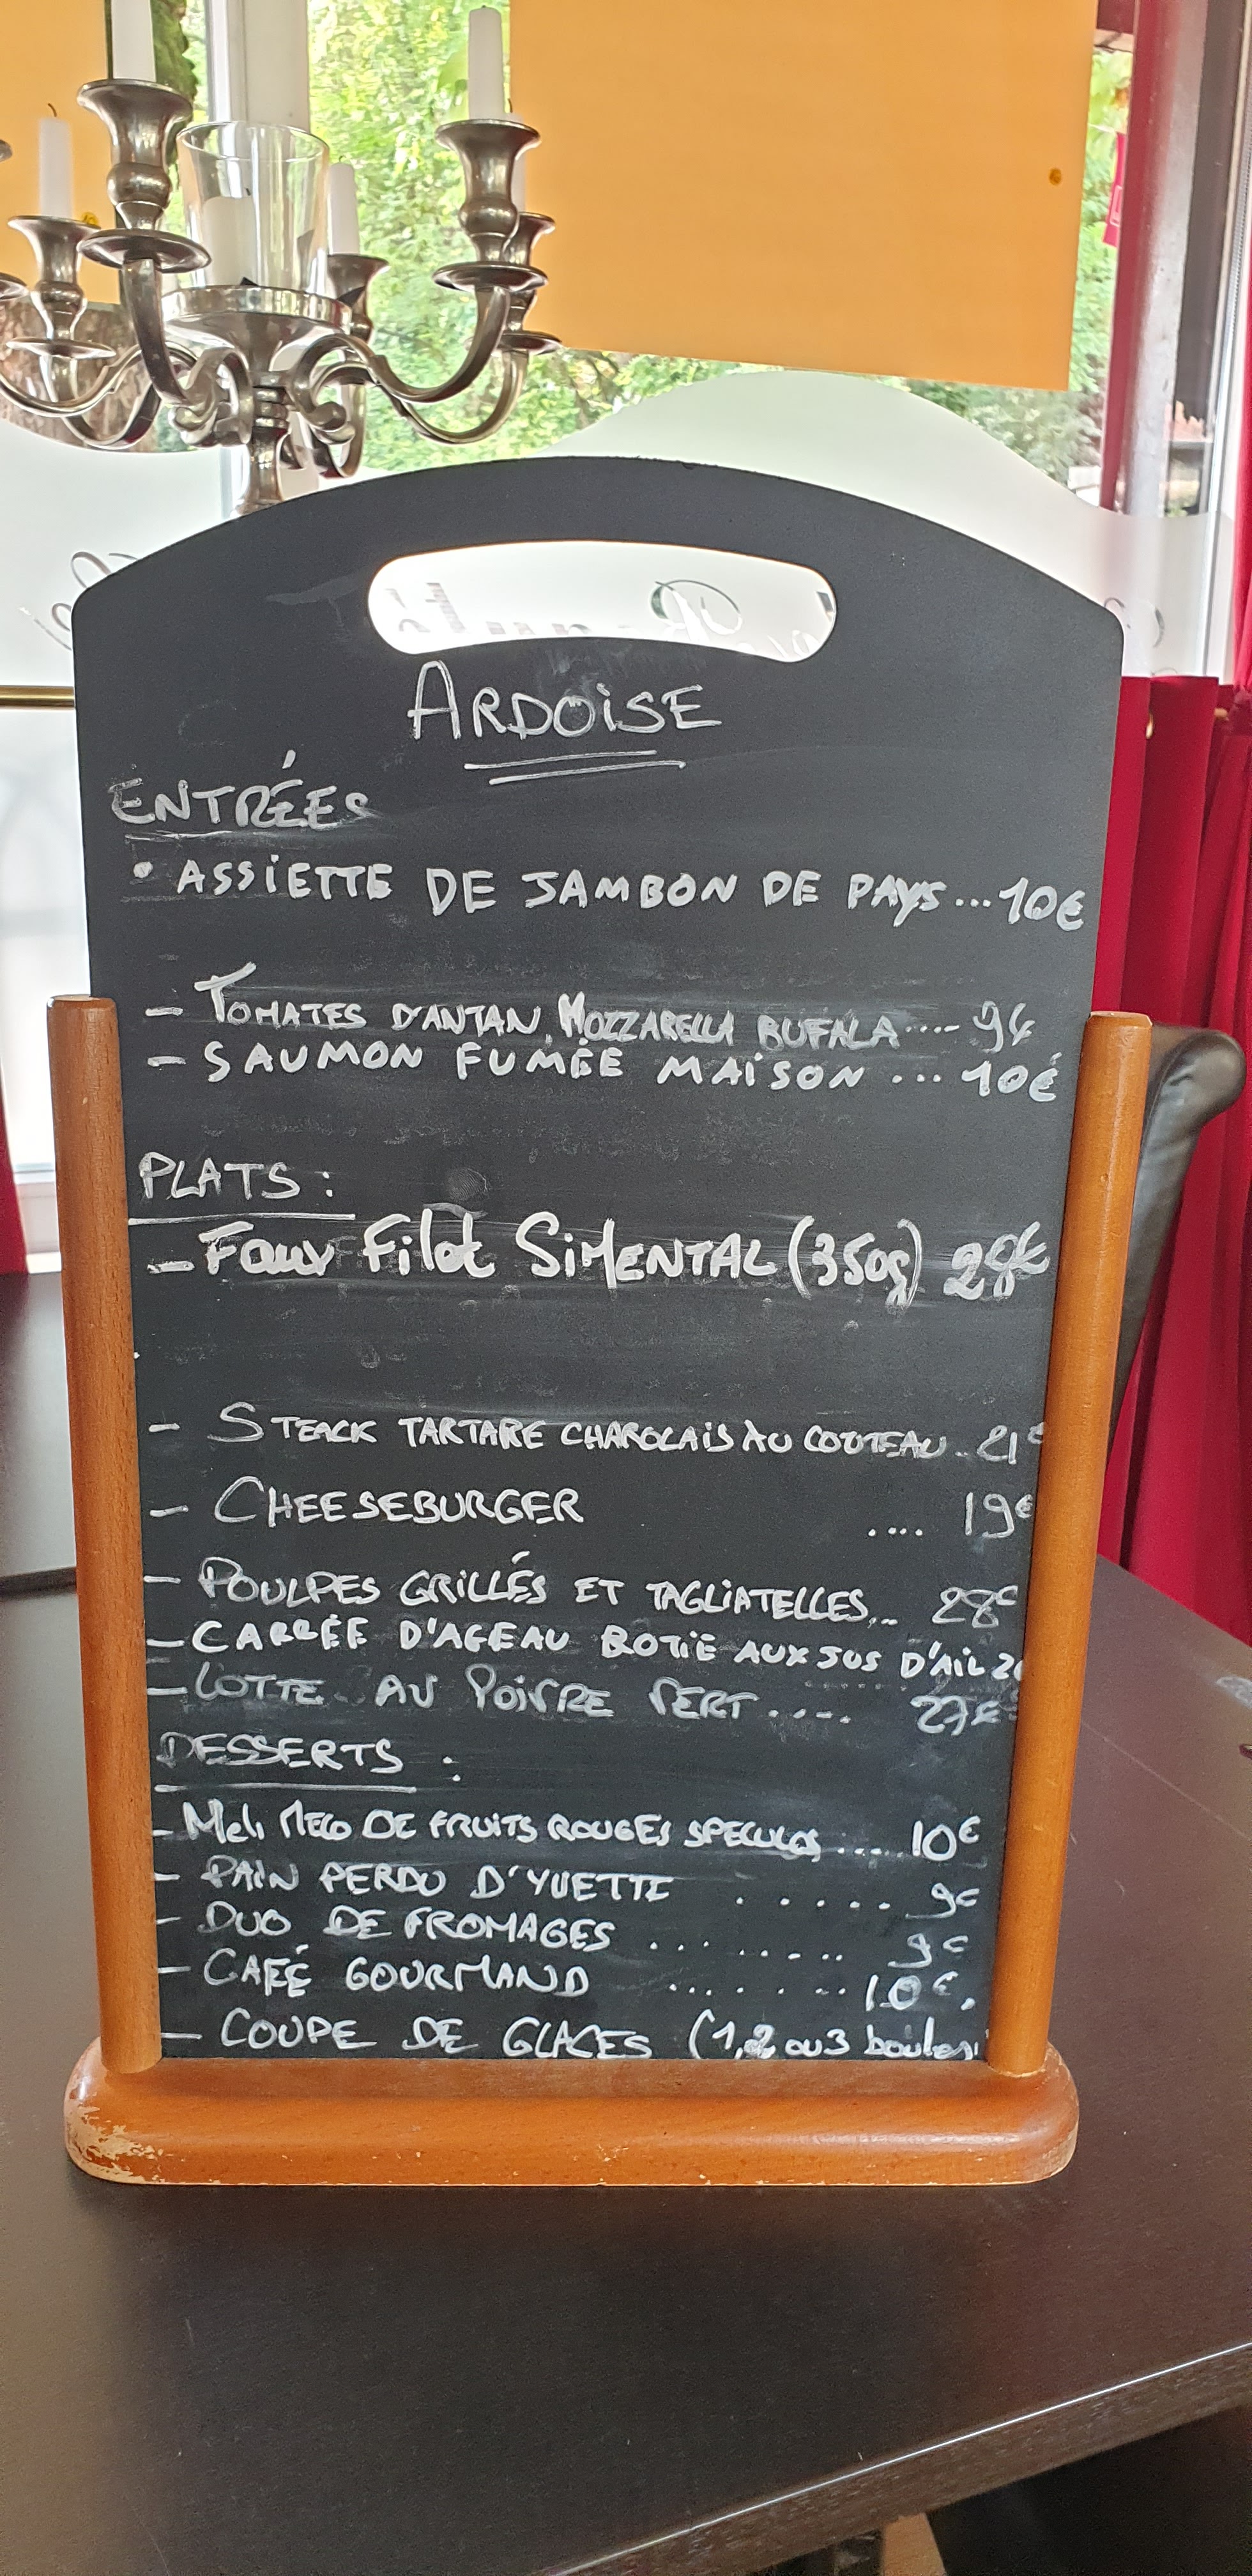 ARDOISE
ENTRÉES
• ASSIETTE DE JAMBON DE PAYS...10€
- TOMATES D'ANTAN, MOZZARELLA BUFALA....9€
- SAUMON FUMÉE MAISON...10€
PLATS :
- Faux Filet SIMENTAL (350g) 28€
- STEACK TARTARE CHAROLAIS AU COUTEAU..21€
- CHEESEBURGER .... 19€
- POULPES GRILLÉS ET TAGLIATELLES... 28€
- CARRÉE D'AGEAU ROTIE AUX JUS D'AIL
- LOTTE AU POIVRE VERT .... 27€
DESSERTS :
- Meli Melo DE FRUITS ROUGES SPECULOS ..... 10€
- PAIN PERDU D'YVETTE ..... 9€
- DUO DE FROMAGES ....... 9€
- CAFÉ GOURMAND ....... 10€.
- COUPE DE GLACES (1,2 ou 3 boules